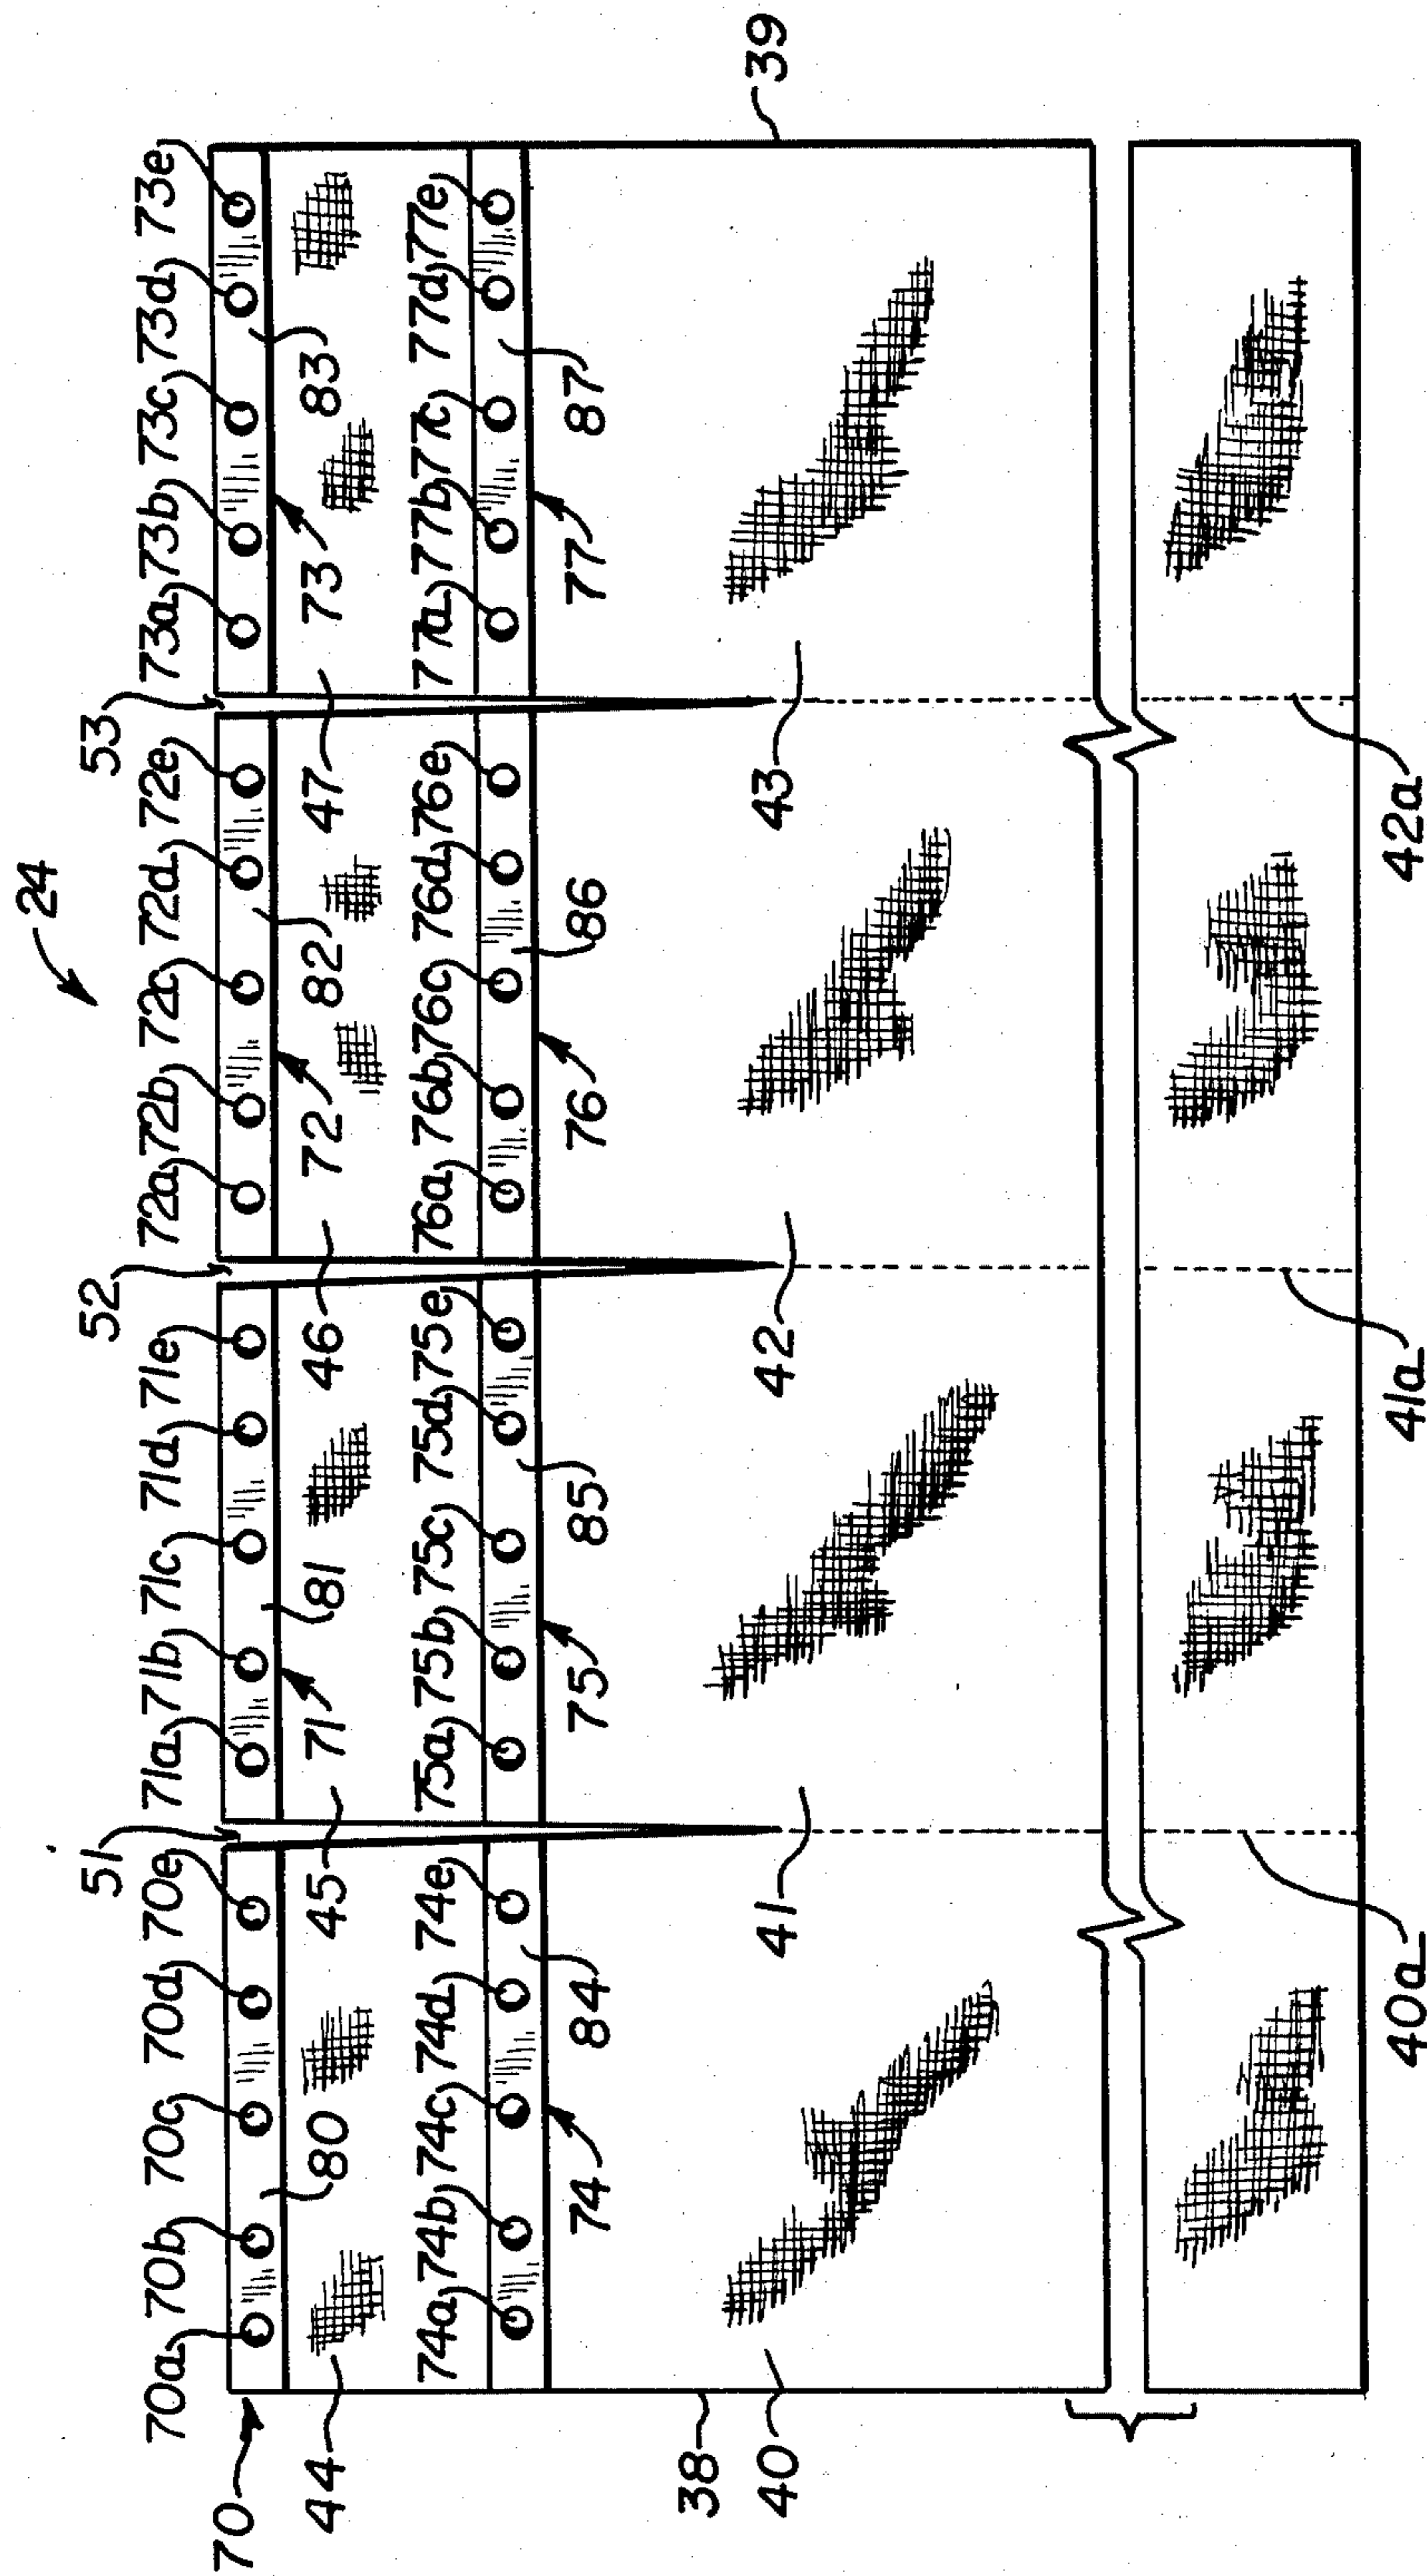 24
51 52 53
70a 70b 70c 70d 70e 71a 71b 71c 71d 71e 72a 72b 72c 72d 72e 73a 73b 73c 73d 73e
70
44 80 45 71 81 46 72 82 47 73 83
74a 74b 74c 74d 74e 75a 75b 75c 75d 75e 76a 76b 76c 76d 76e 77a 77b 77c 77d 77e
74 84 75 85 76 86 77 87
38 39
40 41 42 43
40a 41a 42a